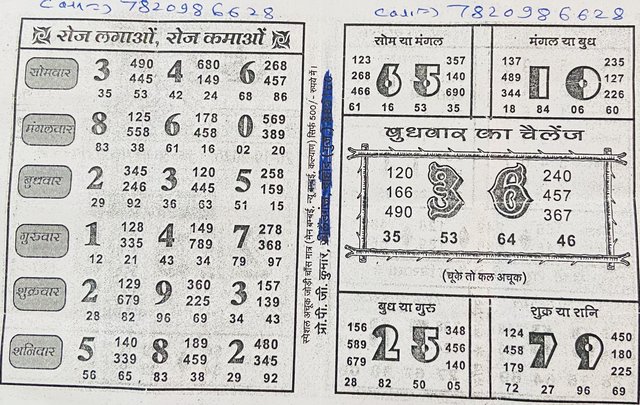 Call=) 7820986628
रोज लगाओं, रोज कमाओं
सोमवार 3 490 445 4 680 149 6 268 457
35 53 42 24 68 86
मंगलवार 8 125 558 6 178 458 0 569 389
83 38 61 16 02 20
बुधवार 2 345 246 3 120 445 5 258 159
29 92 36 63 51 15
गुरुवार 1 128 335 4 149 789 7 278 368
12 21 43 34 79 97
शुक्रवार 2 129 679 9 360 225 3 157 139
28 82 96 69 34 43
शनिवार 5 140 339 8 189 459 2 480 345
56 65 83 38 29 92
स्पेशल अचूक जोड़ी चाँस मात्र (मेन बम्बई, न्यू बम्बई, कल्याण) सिर्फ 500/- रुपये में।
प्रो.पी. जी. कुमार,
Call=) 7820986628
सोम या मंगल
123 268 466 6 5 357 140 690
61 16 53 35
मंगल या बुध
137 489 344 1 0 235 127 226
18 84 06 60
बुधवार का चैलेंज
120 166 490 240 457 367
35 53 64 46
(चूके तो कल अचूक)
बुध या गुरु
156 589 679 2 5 348 456 140
28 82 50 05
शुक्र या शनि
124 458 179 7 9 450 180 225
72 27 96 69